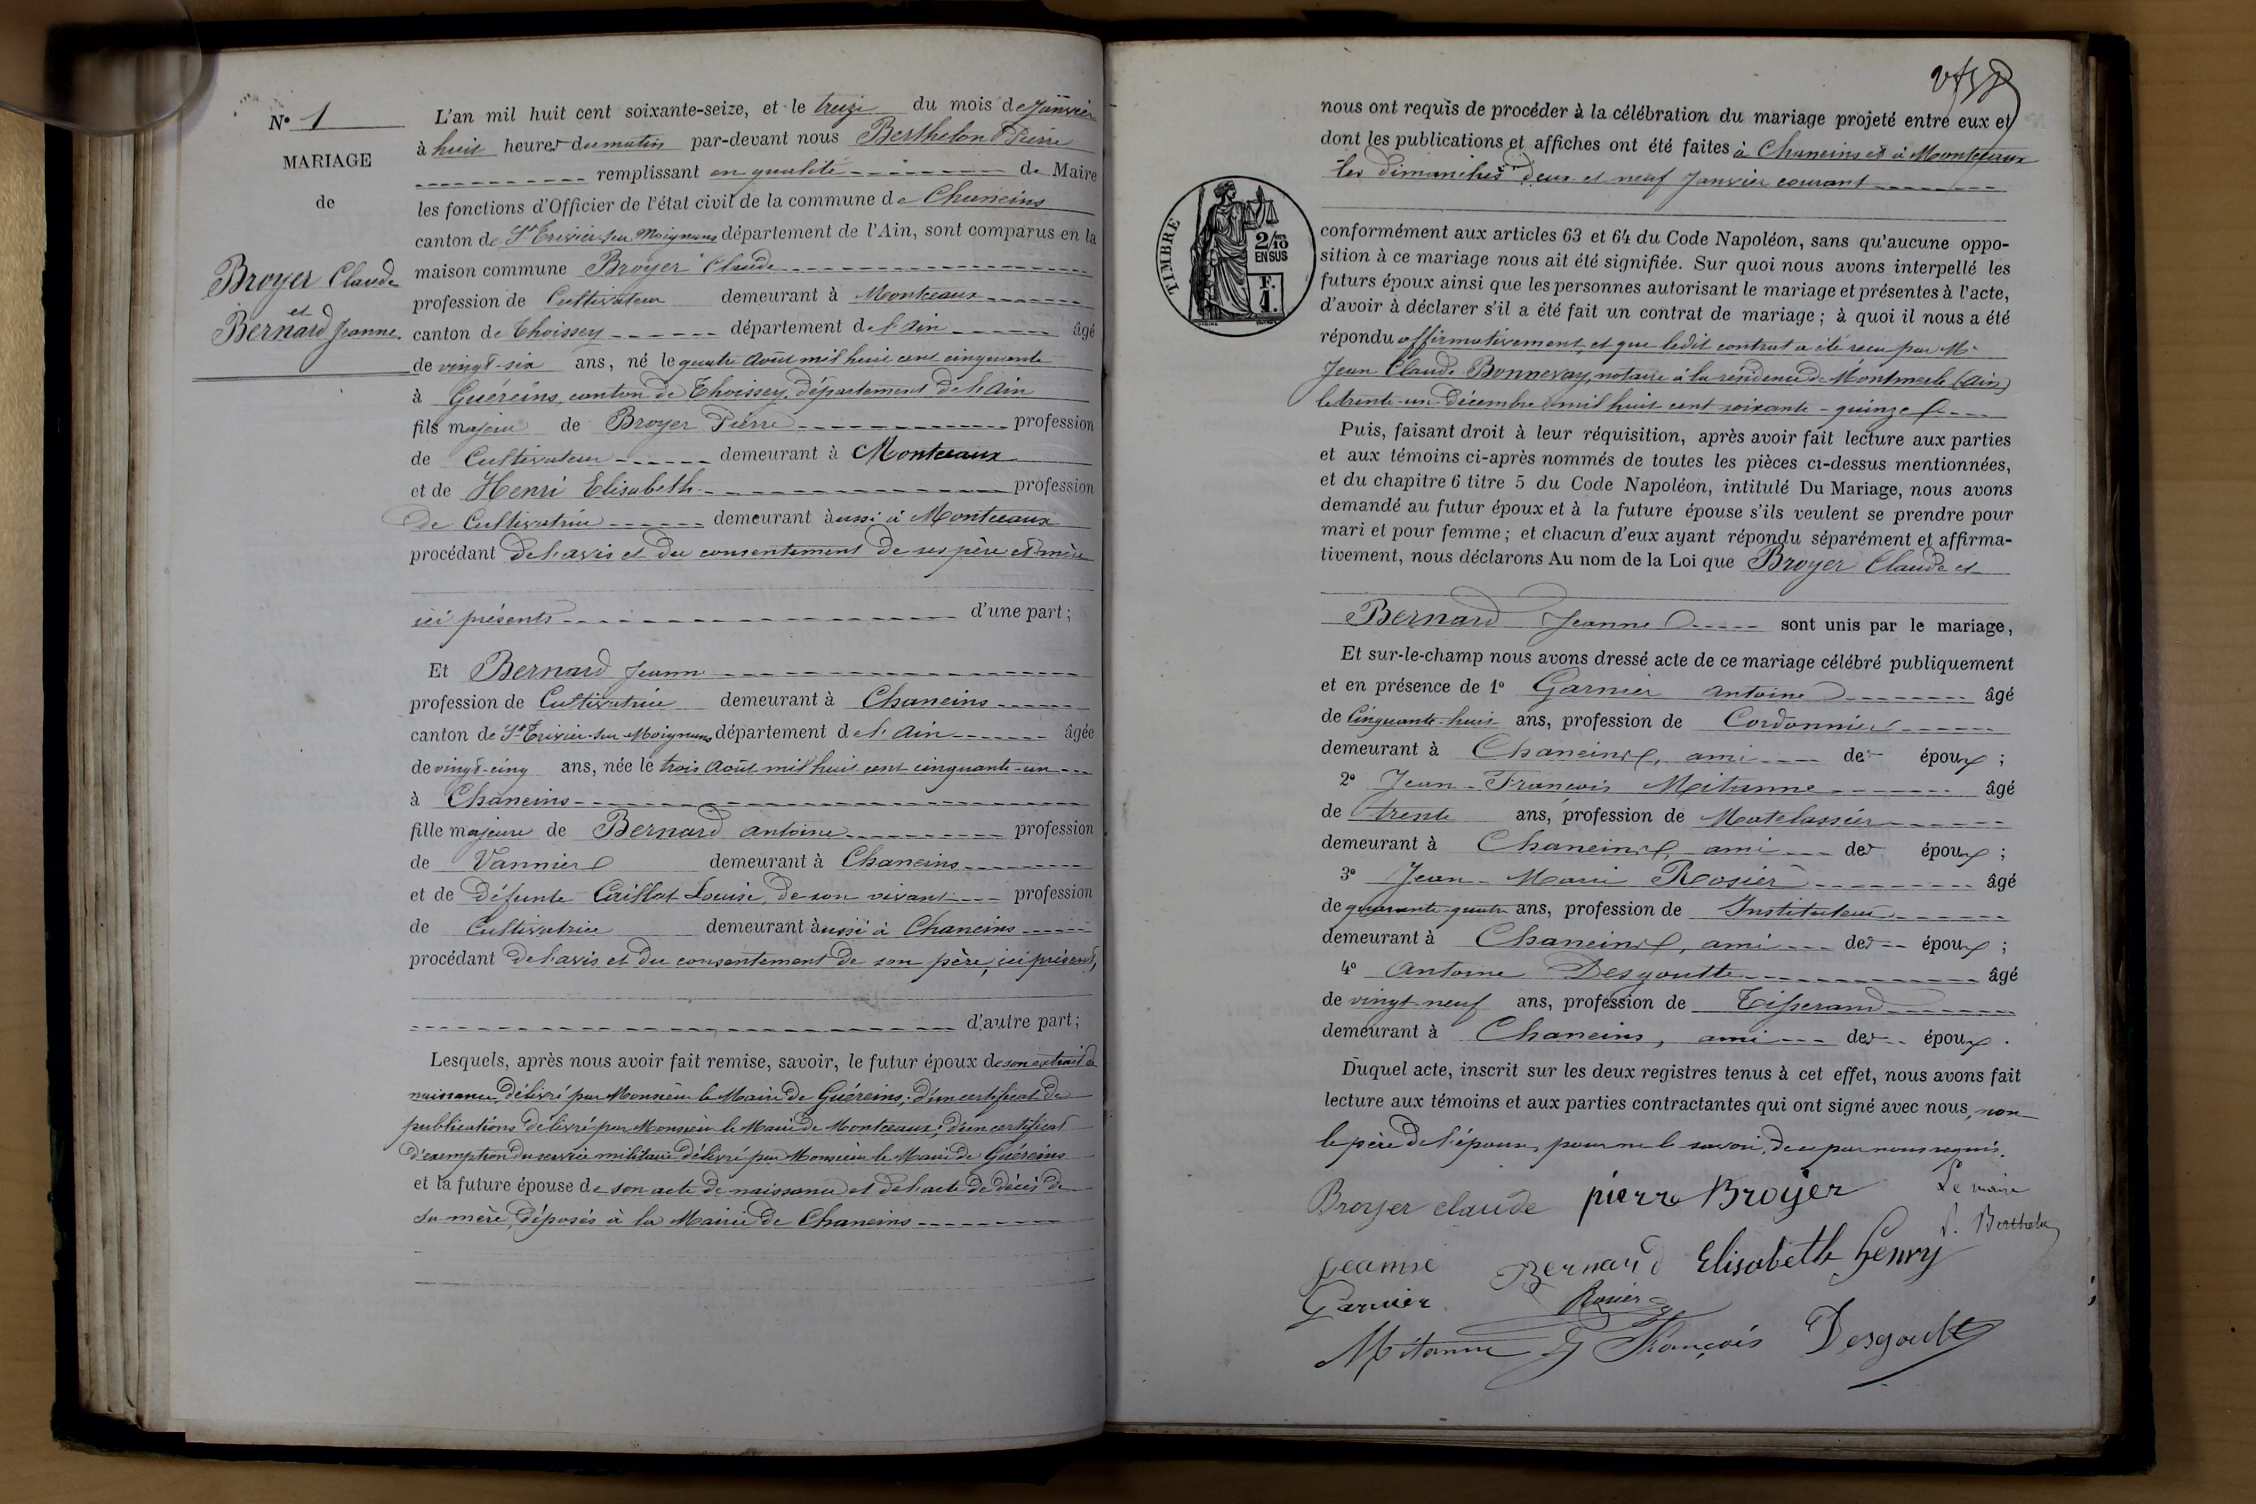 N° 1
MARIAGE
de
Broyer Claude
et
Bernard Jeanne.
L'an mil huit cent soixante-seize, et le treize du mois de Janvier
à huit heures du matin par-devant nous Berthelon Pierre
remplissant en qualité de Maire
les fonctions d'Officier de l'état civil de la commune de Chaneins
canton de St Trivier-sur Moignans département de l'Ain, sont comparus en la
maison commune Broyer Claude
profession de Cultivateur demeurant à Montceaux
canton de Thoissey département de l'Ain âgé
de vingt-six ans, né le quatre Août mil huit cent cinquante
à Guéreins, canton de Thoissey, département de l'Ain
fils majeur de Broyer Pierre profession
de Cultivateur demeurant à Montceaux
et de Henri Elisabeth profession
de Cultivatrice demeurant aussi à Montceaux
procédant de l'avis et du consentement de ses père et mère
ici présents d'une part;
Et Bernard Jeanne
profession de Cultivatrice demeurant à Chaneins
canton de St Trivier-sur-Moignans département de l'Ain âgée
de vingt-cinq ans, née le trois Août mil huit cent cinquante-un
à Chaneins
fille majeure de Bernard Antoine profession
de Vannier demeurant à Chaneins
et de défunte Caillat Louise, de son vivant profession
de Cultivatrice demeurant aussi à Chaneins
procédant de l'avis et du consentement de son père, ici présent,
d'autre part;
Lesquels, après nous avoir fait remise, savoir, le futur époux de son extrait de
naissance, délivré par Monsieur le Maire de Guéreins; d'un certificat de
publications délivré par Monsieur le Maire de Montceaux; d'un certificat
d'exemption du service militaire délivré par Monsieur le Maire de Guéreins
et la future épouse de son acte de naissance et de l'acte de décès de
sa mère, déposés à la Mairie de Chaneins
nous ont requis de procéder à la célébration du mariage projeté entre eux et
dont les publications et affiches ont été faites à Chaneins et à Montceaux
les dimanches deux et neuf Janvier courant
TIMBRE
2/10 EN SUS
F. 1.
conformément aux articles 63 et 64 du Code Napoléon, sans qu'aucune oppo-
sition à ce mariage nous ait été signifiée. Sur quoi nous avons interpellé les
futurs époux ainsi que les personnes autorisant le mariage et présentes à l'acte,
d'avoir à déclarer s'il a été fait un contrat de mariage; à quoi il nous a été
répondu affirmativement, et que ledit contrat a été reçu par Me
Jean Claude Bonnevay, notaire à la résidence de Montmerle (Ain)
le trente-un Décembre mil huit cent soixante-quinze
Puis, faisant droit à leur réquisition, après avoir fait lecture aux parties
et aux témoins ci-après nommés de toutes les pièces ci-dessus mentionnées,
et du chapitre 6 titre 5 du Code Napoléon, intitulé Du Mariage, nous avons
demandé au futur époux et à la future épouse s'ils veulent se prendre pour
mari et pour femme; et chacun d'eux ayant répondu séparément et affirma-
tivement, nous déclarons Au nom de la Loi que Broyer Claude et
Bernard Jeanne sont unis par le mariage,
Et sur-le-champ nous avons dressé acte de ce mariage célébré publiquement
et en présence de 1° Garnier Antoine âgé
de Cinquante-huit ans, profession de Cordonnier
demeurant à Chaneins, ami des époux;
2° Jean-François Mitanne âgé
de trente ans, profession de Matelassier
demeurant à Chaneins, ami des époux;
3° Jean-Marie Rosier âgé
de quarante-quatre ans, profession de Instituteur
demeurant à Chaneins, ami des époux;
4° Antoine Desgoutte âgé
de vingt-neuf ans, profession de Tisserand
demeurant à Chaneins, ami des époux.
Duquel acte, inscrit sur les deux registres tenus à cet effet, nous avons fait
lecture aux témoins et aux parties contractantes qui ont signé avec nous, non
le père de l'épouse, pour ne le savoir, de ce par nous requis.
Broyer claude pierre Broyer Le maire
P. Berthelon
jeanne Bernard Elisabeth henry
Garnier Rosier
Mitanne François Desgoutte